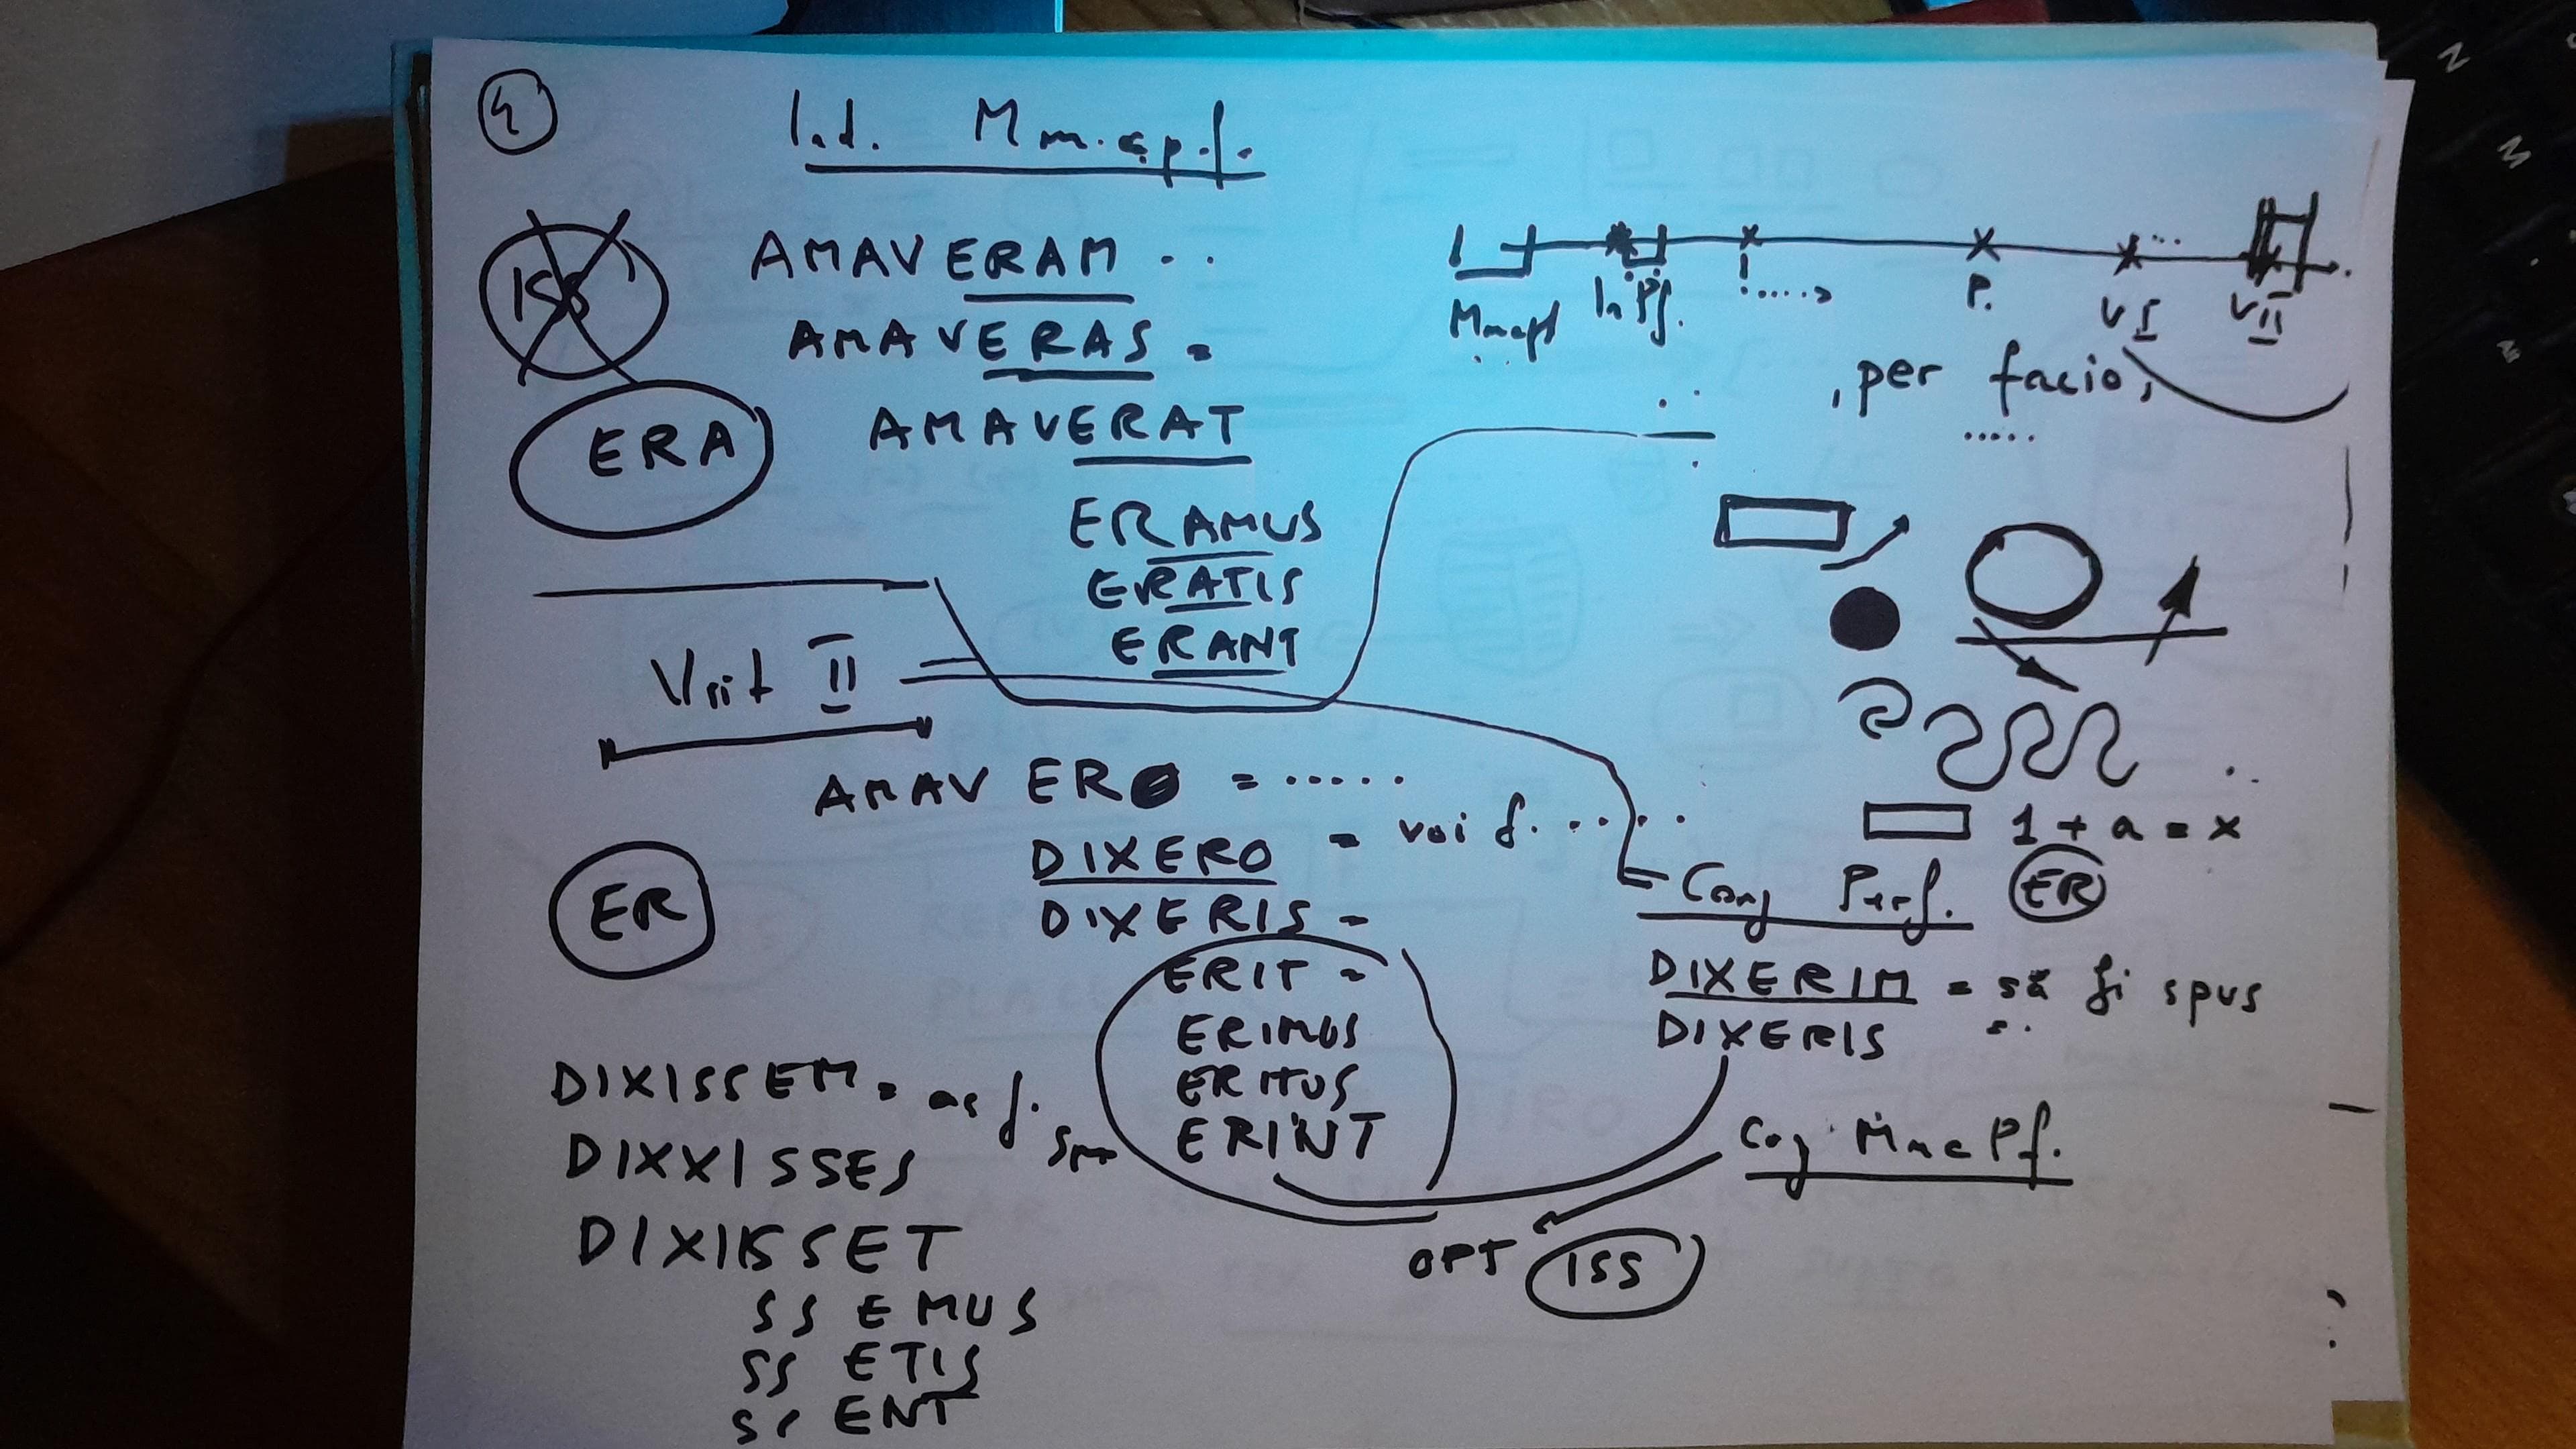 4
Ind. M.m.c.p.f.
ISS
AMAVERAM ..
AMAVERAS =
ERA
AMAVERAT
ERAMUS
ERATIS
ERANT
Mmcpf InPf. I....> P. V I ... V II
, per facio,
.....
Viit II
AMAV ERO = .....
DIXERO = voi f. .....
DIXERIS =
ER
ERIT =
ERIMUS
ERITUS
ERINT
1 + a = x
Conj Perf. ER
DIXERIM = să fi spus
DIXERIS
Coj MmcPf.
OPT ISS
DIXISSEM = aș f.
DIXXISSES
DIXIISSET
SS EMUS
SS ETIS
SS ENT
N
M